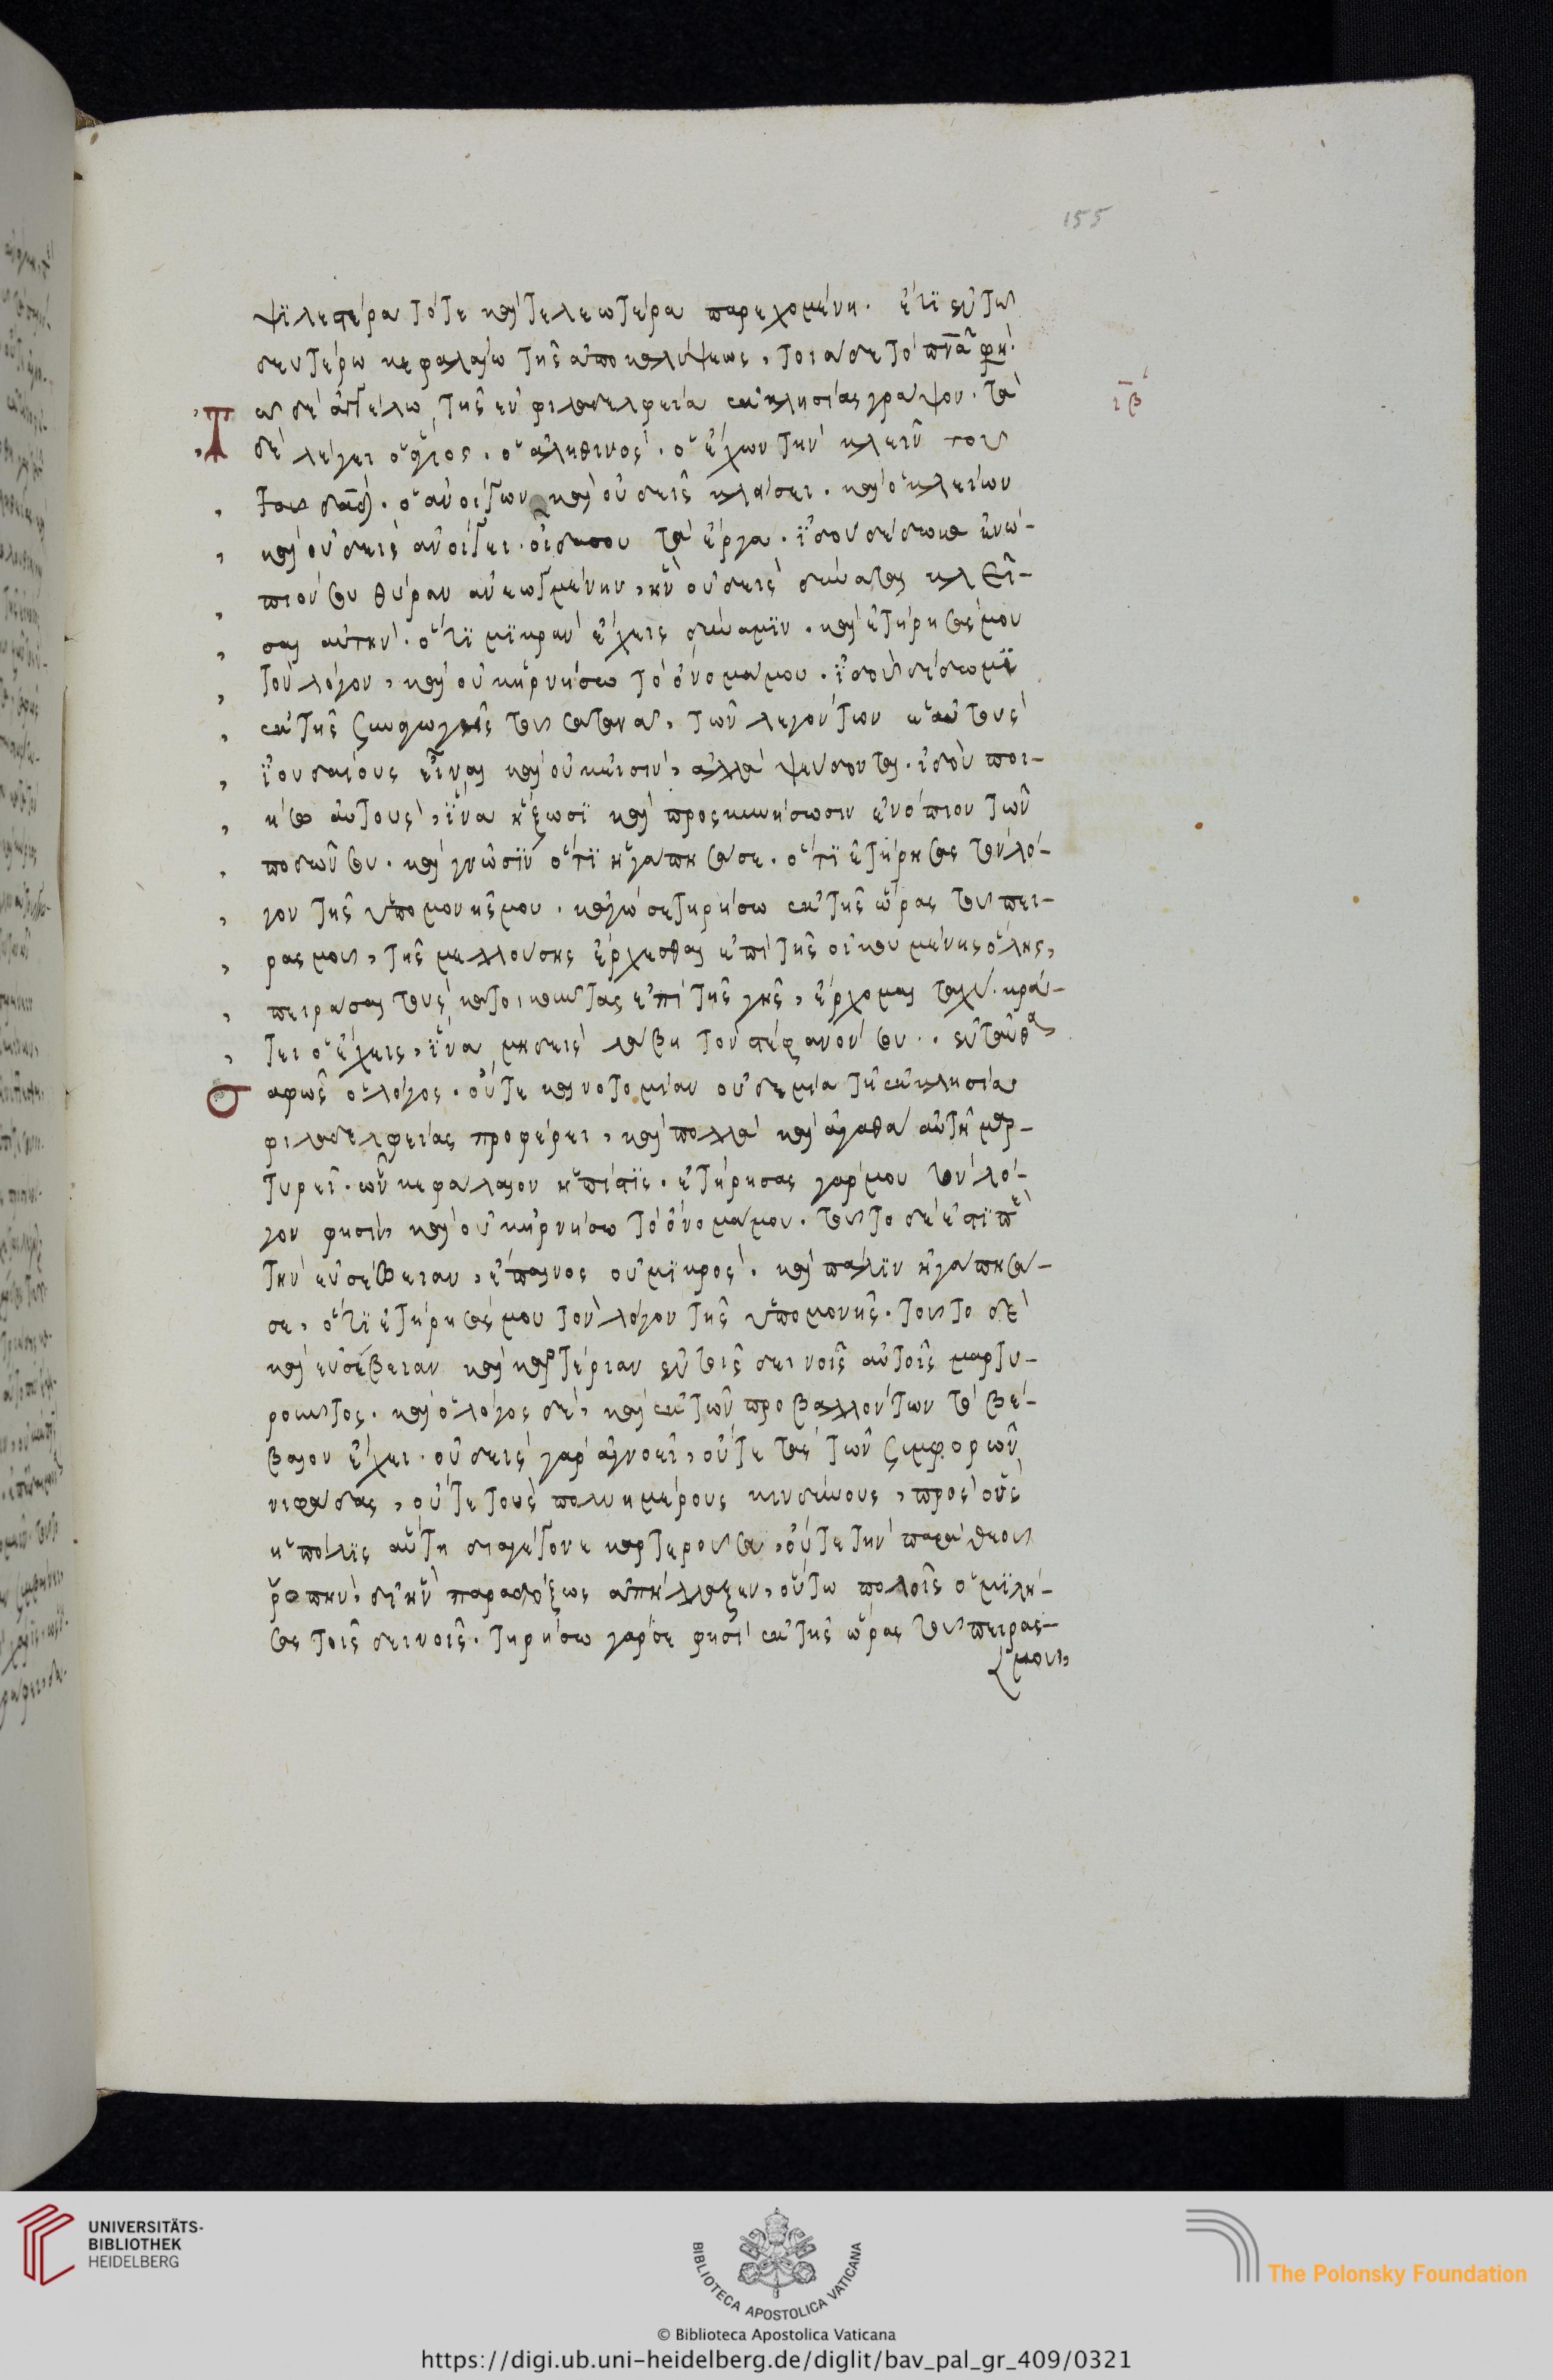 155
ψϊλεστέρα τότε καὶ τελεωτέρα παρεχομένη. ἔτϊ ἐν τῶ
δευτέρω κεφαλαίω τῆς ἀποκαλύψεως, τοιάδε τὸ πνᾶ φη·
ιβ
Τῶ δὲ ἀγγέλω τῆς ἐν φιλαδελφεία ἐκκλησίας γράψον. τά
δε λέγει ὁ ἅγιος. ὁ ἀληθινός. ὁ ἔχων τὴν κλεῖν τοῦ
τοῦ δαδ. ὁ ἀνοίγων καὶ οὐδεὶς κλείσει. καὶ ὁ κλείων
καὶ οὐδεὶς ἀνοίγει. οἶδα σου τὰ ἔργα. ἰδοὺ δέδωκα ἐνώ-
πιόν σου θύραν ἀνεωγμένην, ἣν οὐδεὶς δύναται κλεῖ-
σαι αὐτήν. ὅτϊ μϊκρὰν ἔχεις δύναμϊν. καὶ ἐτήρησάς μου
τὸν λόγον, καὶ οὐκ ἠρνήσω τὸ ὄνομά μου. ἰδοὺ δίδωμϊ
ἐκ τῆς συναγωγῆς τοῦ σατανᾶ, τῶν λεγόντων ἑαυτοὺς
ἰουδαίους εἶναι καὶ οὐκ εἰσὶν, ἀλλὰ ψεύδονται. ἰδοὺ ποι-
ήσω αὐτοὺς, ἵνα ἥξωσϊ καὶ προςκυνήσωσιν ἐνόπιον τῶν
ποδῶν σου. καὶ γνῶσϊν ὅτϊ ἠγάπησά σε. ὅτϊ ἐτήρησας τὸν λό-
γον τῆς ὑπομονῆς μου. καγώ σε τηρήσω ἐκ τῆς ὥρας τοῦ πει-
ρασμοῦ, τῆς μελλούσης ἔρχεσθαι ἐπὶ τῆς οἰκουμένης ὅλης,
πειράσαι τοὺς κατοικοῦντας ἐπὶ τῆς γῆς, ἔρχομαι ταχύ. κρά-
τει ὃ ἔχεις, ἵνα μηδεὶς λάβη τὸν στέφανόν σου.. ἐνταῦθα
σαφῶς ὁ λόγος. οὔτε καινοτομίαν οὐδεμία τῆ ἐκκλησία
φιλαδελφείας προφέρει, καὶ πολλὰ καὶ ἀγαθὰ αὐτῆ μαρ-
τυρεῖ. ὧν κεφάλαιον ἡ πίστϊς. ἐτήρησας γάρ μου τὸν λό-
γον φησὶν, καὶ οὐκ ἠρνήσω τὸ ὄνομά μου. τοῦτο δέ ἐστϊ πε
τὴν εὐσέβειαν, ἔπαινος οὐ μϊκρός. καὶ πάλϊν ἠγάπησά
σε, ὅτϊ ἐτήρησάς μου τὸν λόγον τῆς ὑπομονῆς. τοῦτο δὲ
καὶ εὐσέβειαν καὶ καρτερίαν ἐν τοῖς δεινοῖς αὐτοῖς μαρτυ-
ροῦντος. καὶ ὁ λόγος δὲ, καὶ ἐκ τῶν προβαλλόντων τὸ βέ-
βαιον ἔχει. οὐδεὶς γὰρ ἀγνοεῖ, οὔτε τὰς τῶν συμφορῶν
νιφάδας, οὔτε τοὺς πολυημέρους κινδύνους, πρὸς οὓς
ἡ πόλϊς αὕτη διαγέγονε καρτεροῦσα, οὔτε τὴν παρὰ θεοῦ
ῥοπὴν, δι᾽ ἣν παραδόξως ἀπήλλαξεν, οὕτω πολλοῖς ὁμϊλή-
σας τοῖς δεινοῖς. τηρήσω γάρ σε φησὶ ἐκ τῆς ὥρας τοῦ πειρας-
μοῦ,
UNIVERSITÄTS-
BIBLIOTHEK
HEIDELBERG
BIBLIOTECA APOSTOLICA VATICANA
The Polonsky Foundation
© Biblioteca Apostolica Vaticana
https://digi.ub.uni-heidelberg.de/diglit/bav_pal_gr_409/0321